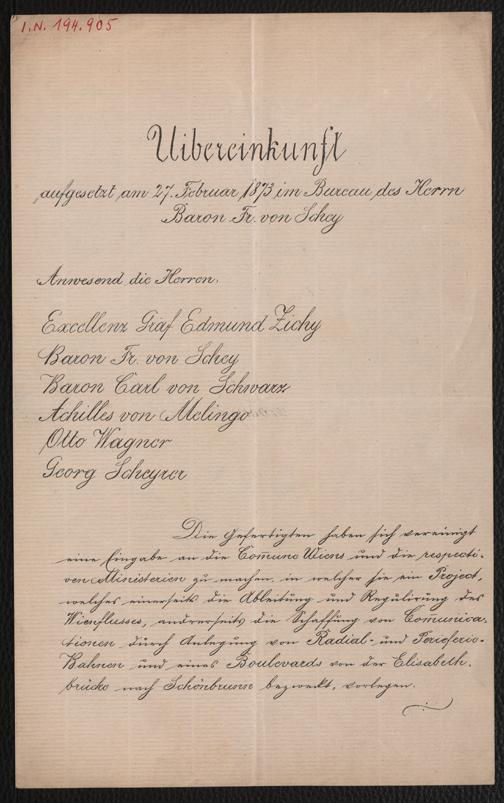 I.N. 194.905
Uibereinkunft
aufgesetzt am 27. Februar 1873 im Bureau des Herrn
Baron Fr. von Schey
Anwesend die Herren,
Excellenz Graf Edmund Zichy
Baron Fr. von Schey
Baron Carl von Schwarz
Achilles von Melingo
Otto Wagner
Georg Scheyrer
Die Gefertigten haben sich vereinigt
eine Eingabe an die Com̄une Wiens und die respecti-
ven Ministerien zu machen in welcher sie ein Project,
welches einerseits die Ableitung und Regulirung des
Wienflusses, andrerseits die Schaffung von Comunica-
tionen durch Anlegung von Radial- und Pereferie-
Bahnen und eines Boulevards von der Elisabeth-
brücke nach Schönbrunn bezweckt, vorlegen.